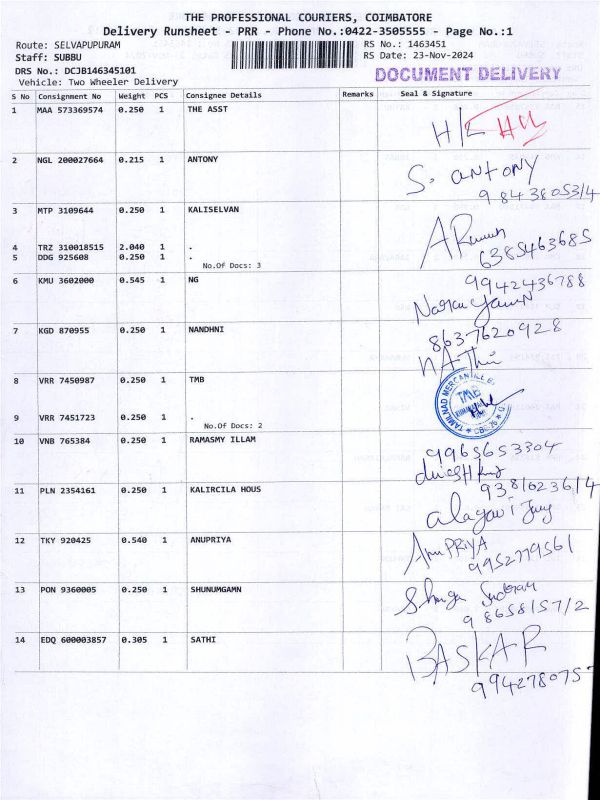 THE PROFESSIONAL COURIERS, COIMBATORE
Delivery Runsheet - PRR - Phone No.:0422-3505555 - Page No.:1
Route: SELVAPUPURAM RS No.: 1463451
Staff: SUBBU RS Date: 23-Nov-2024
DRS No.: DCJB146345101 DOCUMENT DELIVERY
Vehicle: Two Wheeler Delivery
S No Consignment No Weight PCS Consignee Details Remarks Seal & Signature
1 MAA 573369574 0.250 1 THE ASST
H/L HCL
2 NGL 200027664 0.215 1 ANTONY
S. ANTONY
9843805314
3 MTP 3109644 0.250 1 KALISELVAN
4 TRZ 310018515 2.040 1 .
6385463685
5 DDG 925608 0.250 1 .
No.Of Docs: 3
6 KMU 3602000 0.545 1 NG
9942436788
7 KGD 870955 0.250 1 NANDHNI
8637620928
8 VRR 7450987 0.250 1 TMB
TAMILNAD MERCANTILE
TMB
9 VRR 7451723 0.250 1 .
No.Of Docs: 2
10 VNB 765384 0.250 1 RAMASMY ILLAM
9965653304
11 PLN 2354161 0.250 1 KALIRCILA HOUS
9381023614
12 TKY 920425 0.540 1 ANUPRIYA
Anu PRIYA
9952779561
13 PON 9360005 0.250 1 SHUNUMGAMN
9865815712
14 EDQ 600003857 0.305 1 SATHI
BASKAR
9942780757